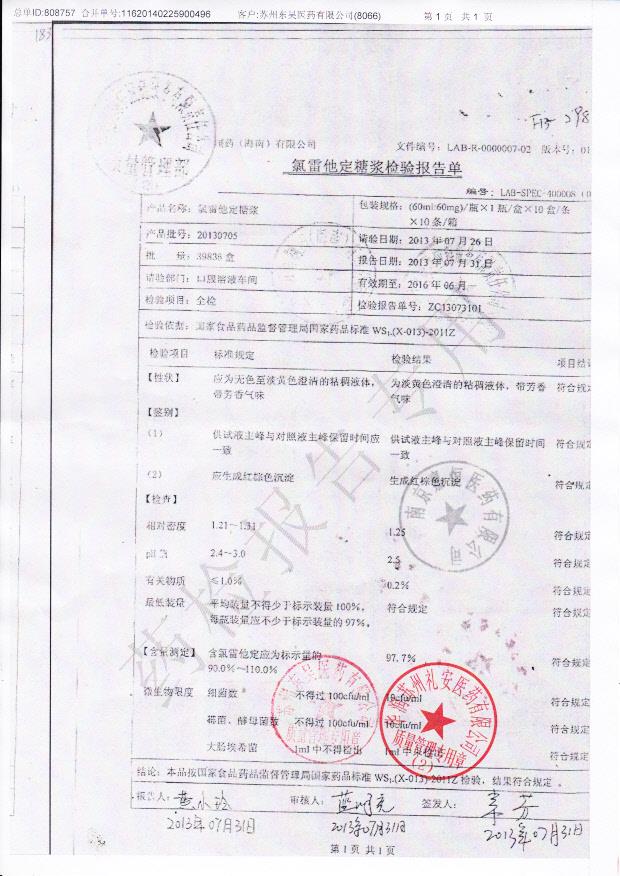 总单ID:808757 合并单号:11620140225900496 客户:苏州东吴医药有限公司(8066) 第 1 页 共 1 页
183
制药（海南）有限公司
文件编号：LAB-R-0000007-02 版本号：01
氯雷他定糖浆检验报告单
编号：LAB-SPEC-400008
产品名称：氯雷他定糖浆
包装规格：(60ml:60mg)/瓶×1瓶/盒×10盒/条
×10条/箱
产品批号：20130705
请验日期：2013年07月26日
批 量：39836盒
报告日期：2013年07月31日
请验部门：口服溶液车间
有效期至：2016年06月
检验项目：全检
检验报告单号：ZC13073101
检验依据：国家食品药品监督管理局国家药品标准 WS₁.(X-013)-2011Z
检验项目 标准规定 检验结果 项目结
【性状】 应为无色至淡黄色澄清的粘稠液体， 为淡黄色澄清的粘稠液体，带芳香 符合规
带芳香气味 气味
【鉴别】
（1） 供试液主峰与对照液主峰保留时间应 供试液主峰与对照液主峰保留时间 符合规
一致 一致
（2） 应生成红棕色沉淀 生成红棕色沉淀 符合规
【检查】
相对密度 1.21～1.31 1.25 符合规定
pH 值 2.4～3.0 2.5 符合规定
有关物质 ≤1.0% 0.2% 符合规定
最低装量 平均装量不得少于标示装量 100%， 符合规定 符合规定
每瓶装量应不少于标示装量的 97%。
【含量测定】 含氯雷他定应为标示量的 97.7% 符合规定
90.0%～110.0%
微生物限度 细菌数 不得过 100cfu/ml 10cfu/ml 符合规定
霉菌、酵母菌数 不得过 100cfu/ml 10cfu/ml 符合规定
大肠埃希菌 1ml 中不得检出 1ml 中未检出 符合规定
结论：本品按国家食品药品监督管理局国家药品标准 WS₁.(X-013)-2011Z 检验，结果符合规定。
报告人： 审核人： 签发人：
2013年07月31日 2013年07月31日 2013年07月31日
第 1 页 共 1 页
药检报告专用
质量管理部
南京
医药有限公司
东吴医药有限公司
质量管理专用章
苏州礼安医药有限公司
质量管理专用章
(2)